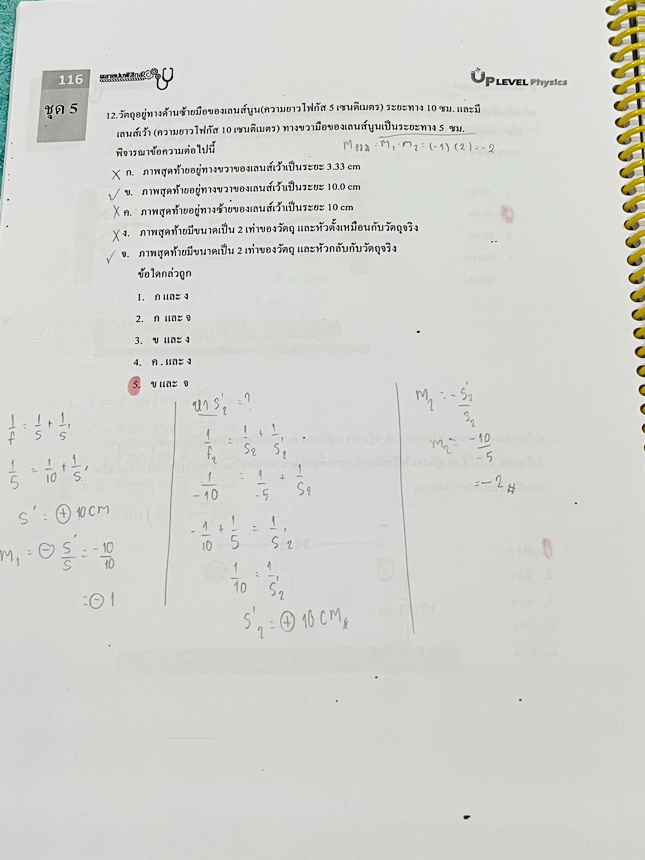 116
UP LEVEL Physics
ชุด 5
12.วัตถุอยู่ทางด้านซ้ายมือของเลนส์นูน(ความยาวโฟกัส 5 เซนติเมตร) ระยะทาง 10 ซม. และมี
เลนส์เว้า (ความยาวโฟกัส 10 เซนติเมตร) ทางขวามือของเลนส์นูนเป็นระยะทาง 5 ซม.
พิจารณาข้อความต่อไปนี้
M รวม = M₁ · M₂ = (-1) (2) = -2
✗ ก. ภาพสุดท้ายอยู่ทางขวาของเลนส์เว้าเป็นระยะ 3.33 cm
✓ ข. ภาพสุดท้ายอยู่ทางขวาของเลนส์เว้าเป็นระยะ 10.0 cm
✗ ค. ภาพสุดท้ายอยู่ทางซ้ายของเลนส์เว้าเป็นระยะ 10 cm
✗ ง. ภาพสุดท้ายมีขนาดเป็น 2 เท่าของวัตถุ และหัวตั้งเหมือนกับวัตถุจริง
✓ จ. ภาพสุดท้ายมีขนาดเป็น 2 เท่าของวัตถุ และหัวกลับกับวัตถุจริง
ข้อใดกล่าวถูก
1. ก และ ง
2. ก และ จ
3. ข และ ง
4. ค . และ ง
5. ข และ จ
1/f = 1/s + 1/s'
1/5 = 1/10 + 1/s'
s' = ⊕ 10 cm
M₁ = ⊖ s'/s = -10/10
= ⊖ 1
หา s'₂ = ?
1/f₂ = 1/s₂ + 1/s'₂
1/-10 = 1/-5 + 1/s₂
-1/10 + 1/5 = 1/s'₂
1/10 = 1/s'₂
s'₂ = ⊕ 10 cm #
M₂ = - s'₂/s₂
M₂ = -10/-5
= -2 #